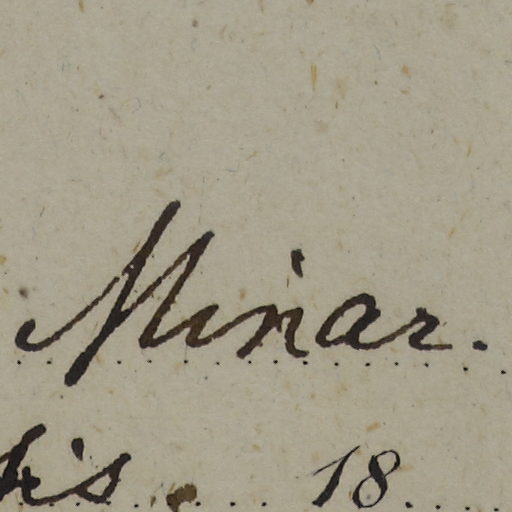 Minar.
is. 18